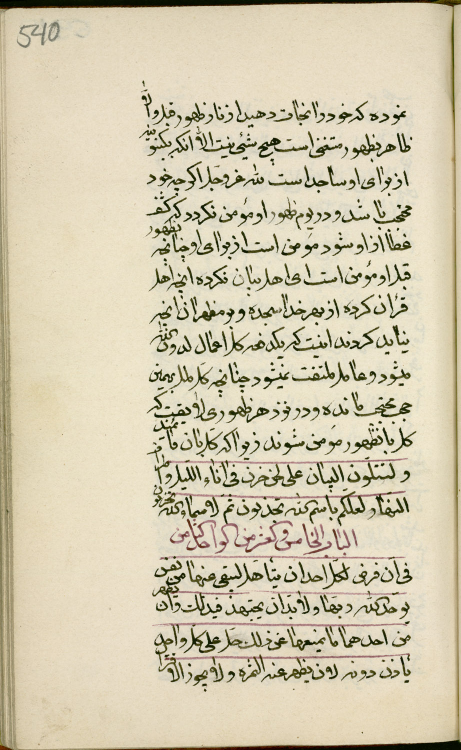 540
نموده که خود را نجات دهید از نار ظهور قبل و الا
ظاهر بظهور متنفی است هیچ شیئی نیست الا آنکه بکینونیته
از برای او ساجد است لله عز وجل اگر چه خود
محتجب باشد و در یوم ظهور او مؤمن نگردد که کشف
غطا از او شود مؤمن است از برای او چنانچه بظهور
قبل او مؤمن است ای اهل بیان نکرده آنچه اهل
قرآن کرده از بهر خدا سجده و بر مظهر آن آنچه
نباید کردند اینست که یکدفعه کل اعمال لدون الله
میشود و عامل ملتفت نمیشود چنانچه کل ملل بهمین
حجب محتجب مانده و در نزد هر ظهوری لا یقیت که
کل بآنظهور مؤمن شوند زیرا که کل بآن
و لتتلون البیان علی لحن حزن فی اناء اللیل و اطراف
النهار و لعلکم باسم الله تجذبون ثم لاسماء الله تحزنون
الباب الخامس والعشر من الواحد الثامن
فی ان فرض لکل احد ان یتاهل لیبقی عنها من نفس
یوحد الله ربها و لا بد ان یجتهد فی ذلک و ان یظهر
من احدهما ما یمنعهما عن ذلک حل علی کل واحد
باذن دونه لان یظهر عنه الثمرة و لا یجوز الاقتران